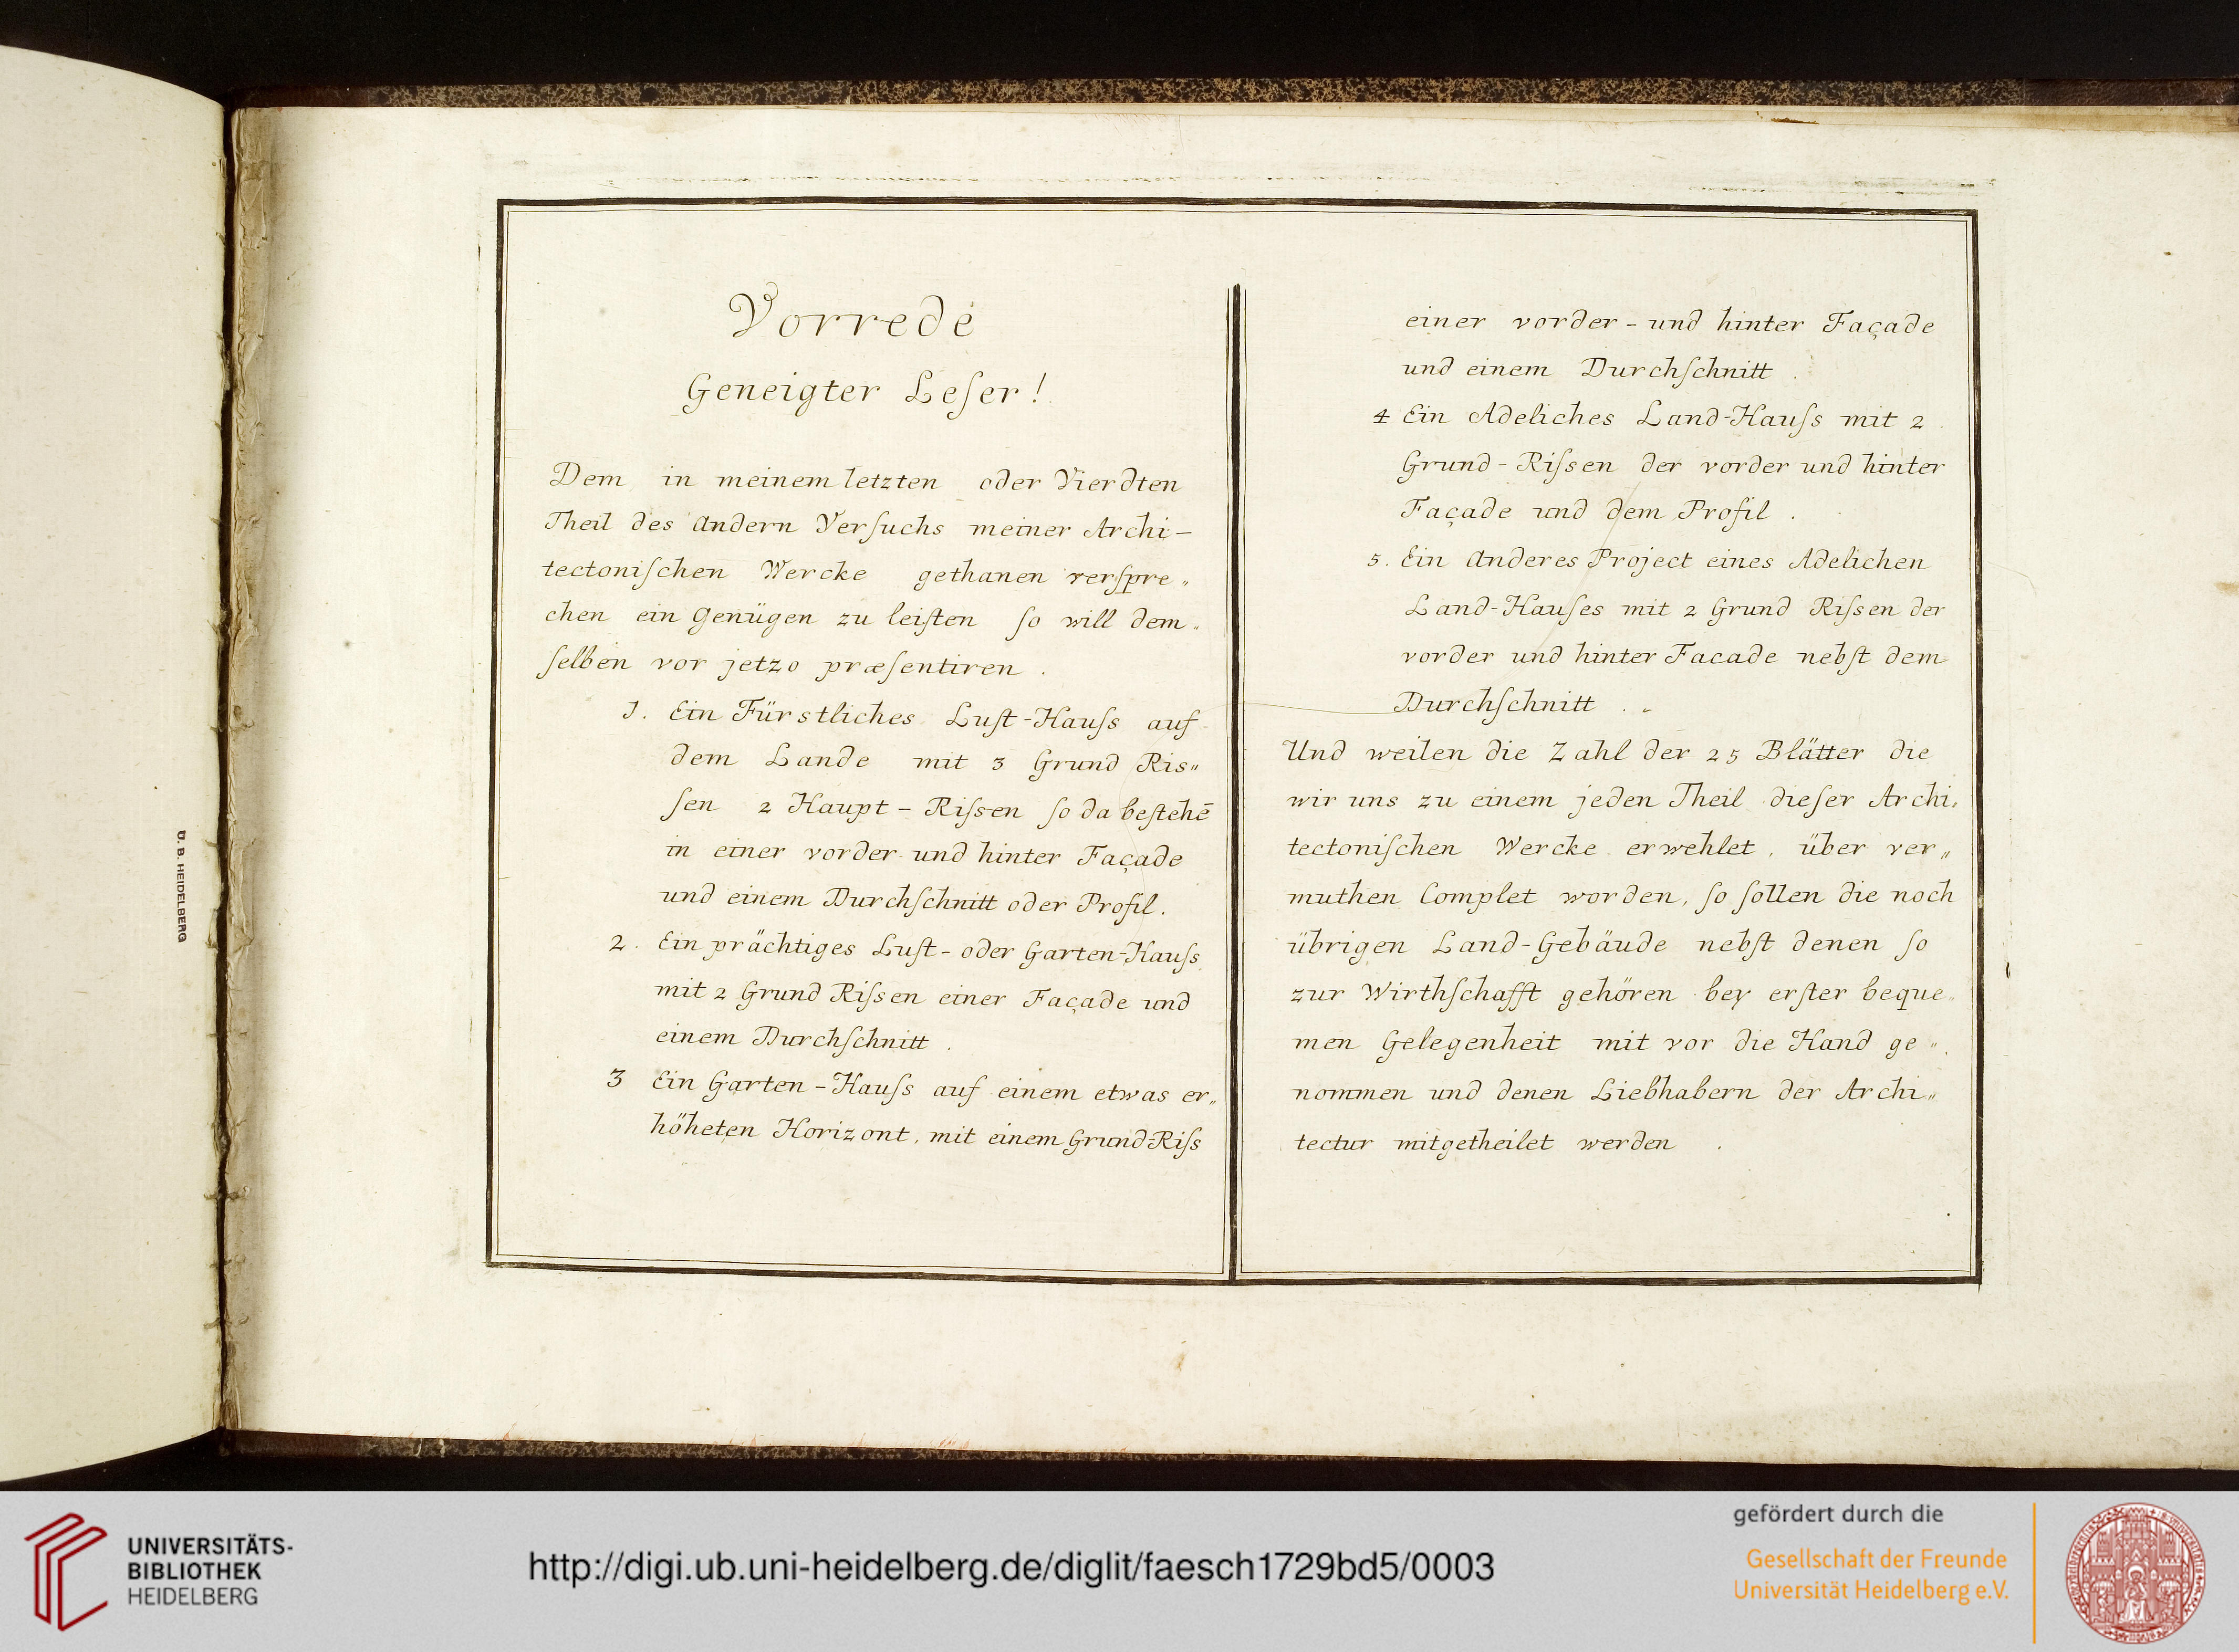 Vorrede
Geneigter Leſer!
Dem in meinem letzten oder Vierdten
Theil des Andern Verſuchs meiner Archi-
tectoniſchen Wercke gethanen verſpre„
chen ein Genügen zu leiſten ſo will dem„
ſelben vor jetzo præſentiren.
1. Ein Fürstliches Luſt-Hauſs auf
dem Lande mit 3 Grund Ris„
ſen 2 Haupt-Riſsen ſo da beſtehē
in einer vorder und hinter Façade
und einem Durchſchnitt oder Profil.
2. Ein prächtiges Luſt- oder Garten-Hauſs
mit 2 Grund Riſsen einer Façade und
einem Durchſchnitt.
3 Ein Garten-Hauſs auf einem etwas er„
höheten Horizont, mit einem Grund-Riſs
einer vorder-und hinter Façade
und einem Durchſchnitt.
4 Ein Adeliches Land-Hauſs mit 2
Grund-Riſsen der vorder und hinter
Façade und dem Profil.
5. Ein Anderes Project eines Adelichen
Land-Hauſes mit 2 Grund Riſsen der
vorder und hinter Facade nebſt dem
Durchſchnitt.
Und weilen die Zahl der 25 Blätter die
wir uns zu einem jeden Theil dieſer Archi„
tectoniſchen Wercke erwehlet, über ver„
muthen Complet worden, ſo ſollen die noch
übrigen Land-Gebäude nebſt denen ſo
zur Wirthſchafft gehören bey erſter beque„
men Gelegenheit mit vor die Hand ge„
nommen und denen Liebhabern der Archi„
tectur mitgetheilet werden.
U. B. HEIDELBERG
UNIVERSITÄTS-
BIBLIOTHEK
HEIDELBERG
http://digi.ub.uni-heidelberg.de/diglit/faesch1729bd5/0003
gefördert durch die
Gesellschaft der Freunde
Universität Heidelberg e.V.